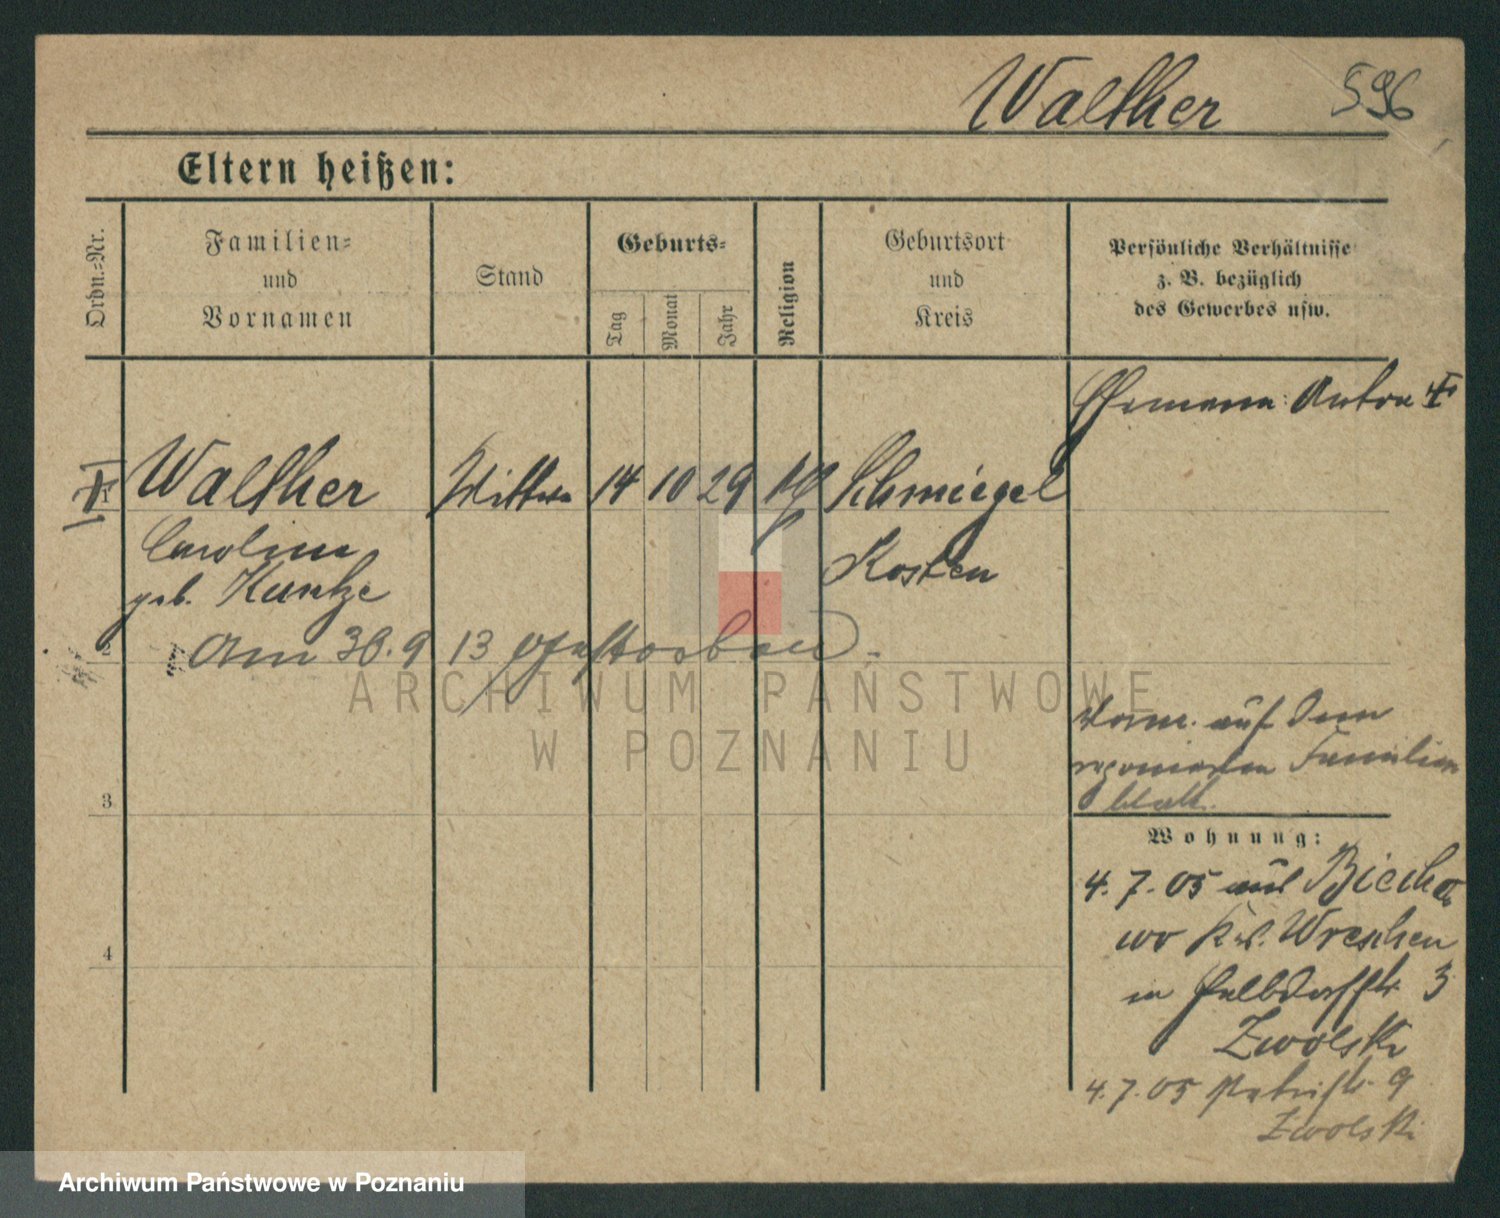 Walther 596
Eltern heißen:
Ordn.=Nr.
Familien=
und
Vornamen
Stand
Geburts=
Tag
Monat
Jahr
Religion
Geburtsort
und
Kreis
Persönliche Verhältnisse
z. B. bezüglich
des Gewerbes usw.
Ehemann: Anton †
Walther Wittwe 14 10 29 Schmiegel
Caroline Kosten
geb. Kuntze
2
Am 30.9 13 gestorben.
ARCHIWUM PAŃSTWOWE
W POZNANIU
auf dem
Familien
blatt.
3
Wohnung:
4. 7. 05 aus Biecho
wo Kr. Wreschen
in 3
Zwolski
4. 7. 05 Petristr. 9
Zwolski
4
Archiwum Państwowe w Poznaniu